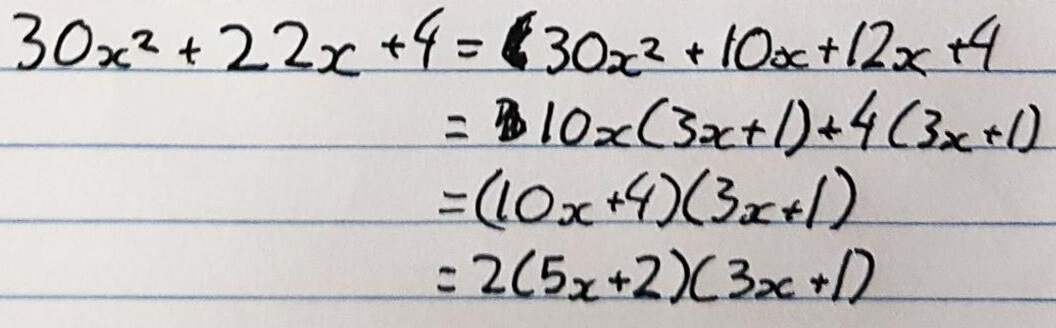 30x² + 22x + 4 = 30x² + 10x + 12x + 4
= 10x(3x+1) + 4(3x+1)
= (10x+4)(3x+1)
= 2(5x+2)(3x+1)